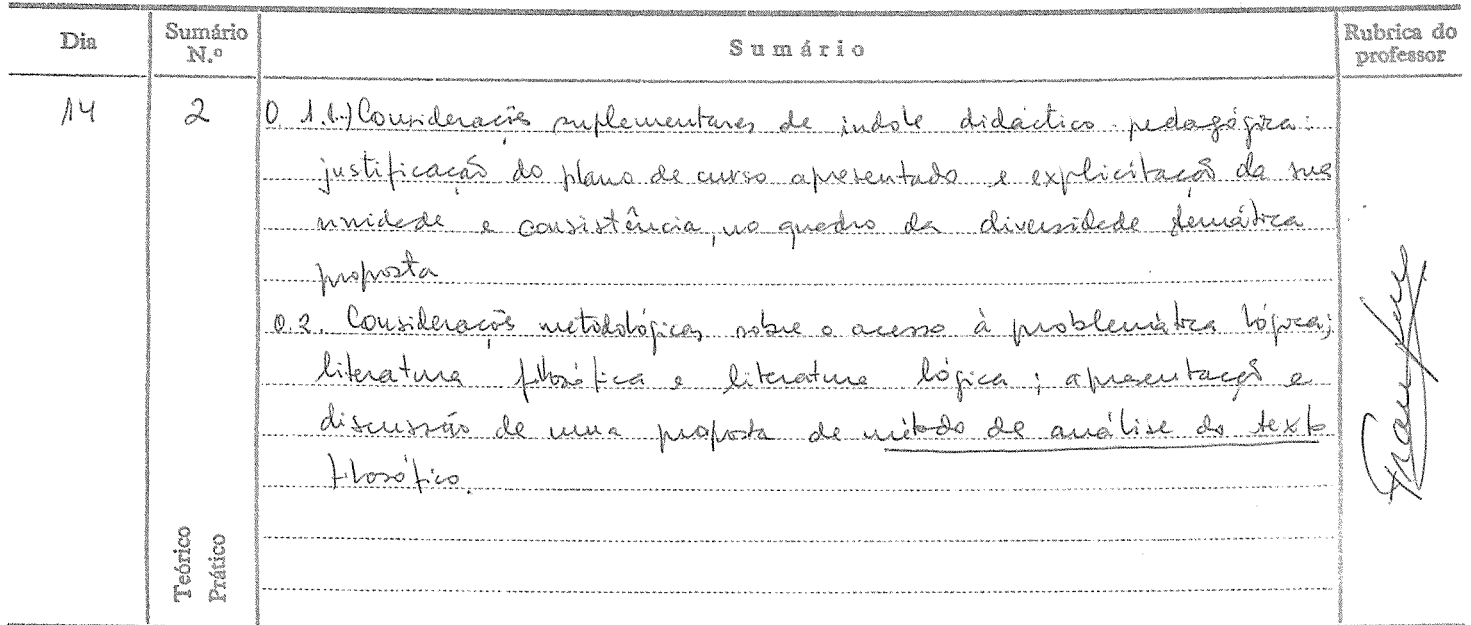 Dia
Sumário N.º
Sumário
Rubrica do professor
14
2
0 1.1.) Considerações suplementares de índole didáctico-pedagógica:
justificação do plano de curso apresentado e explicitação da sua
unidade e consistência, no quadro da diversidade temática
proposta
0.2. Considerações metodológicas sobre o acesso à problemática lógica;
literatura filosófica e literatura lógica; apresentação e
discussão de uma proposta de método de análise do texto
filosófico.
Teórico
Prático